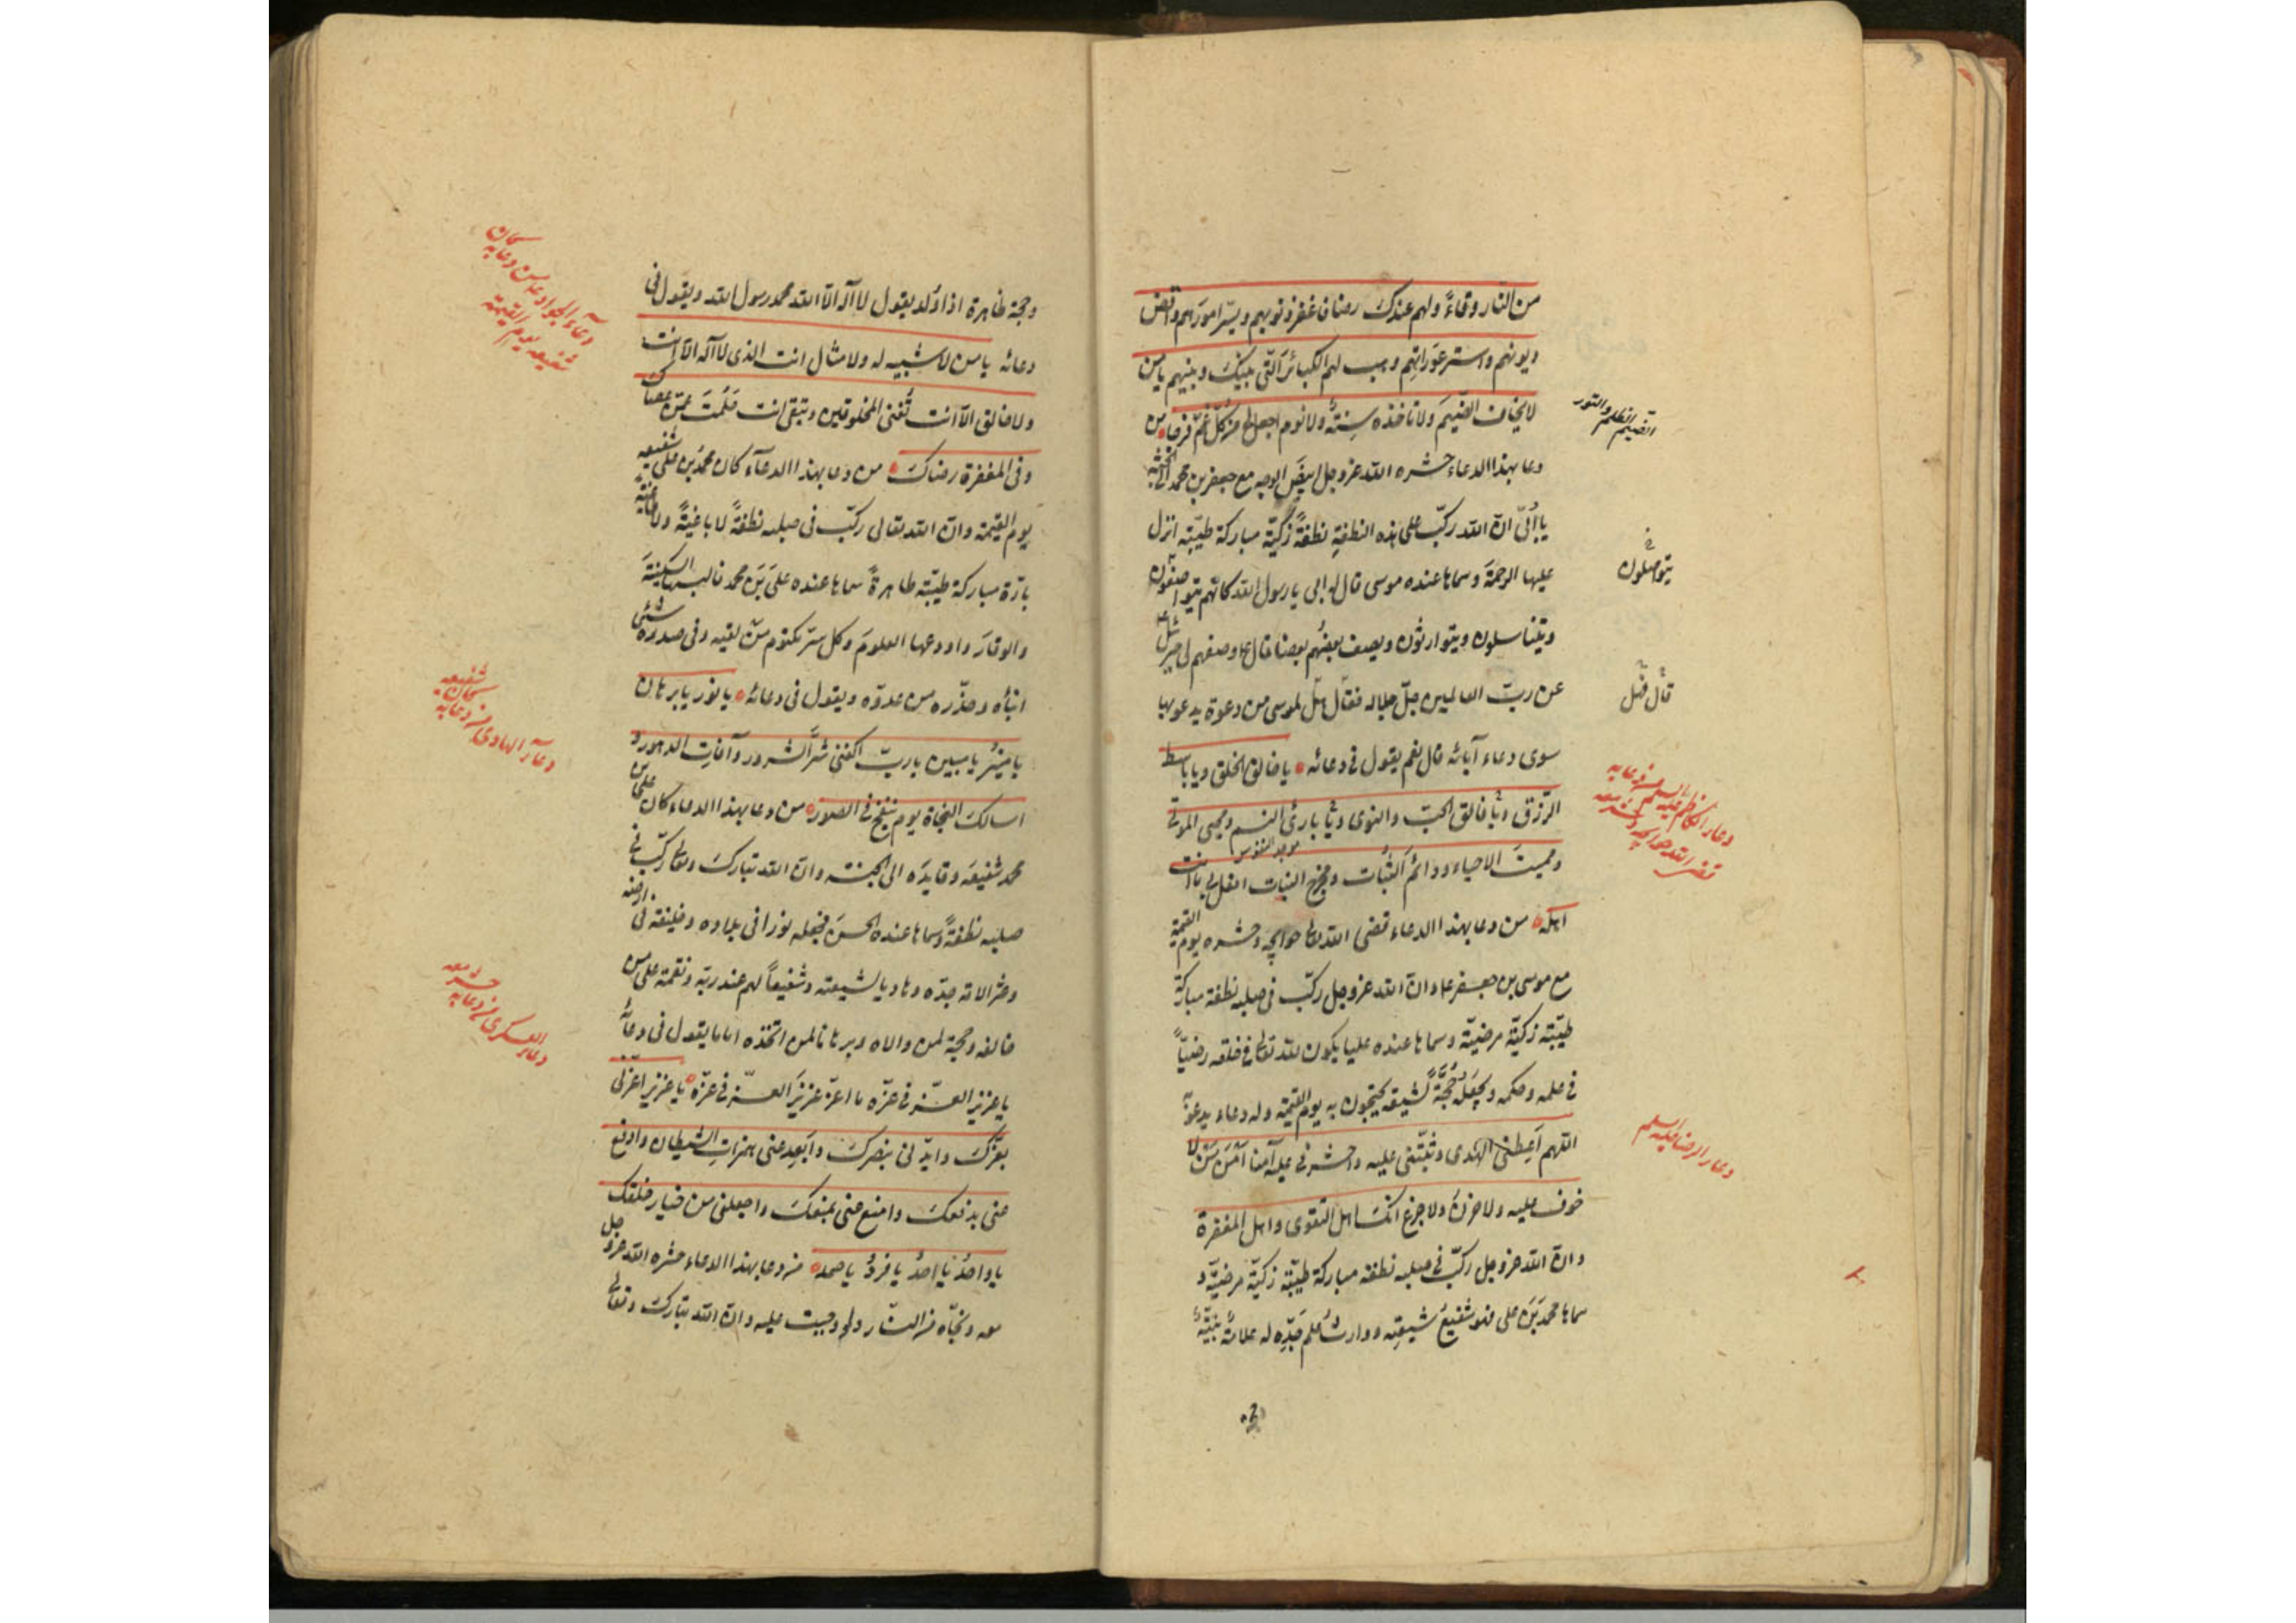 من النار وقاءً ولهم عندك رضا فاغفر ذنوبهم ويسّر امورهم واقض
ديونهم واستر عوراتهم وهب لهم الكبائر التي بينك وبينهم يا من
لا يخاف الضيم ولا تاخذه سنة ولا نوم اجعل لي من كل غمّ فرجا من
دعا بهذا الدعاء حشره الله عز وجل ابيض الوجه مع جعفر بن محمد الى الجنة
يا اُبيّ انّ الله ركّب على هذه النطفة نطفةً زكيّة مباركة طيّبة انزل
عليها الرحمة وسماها عنده موسى قال له ابي يا رسول الله كانهم يتواصفون
ويتناسلون ويتوارثون ويصف بعضهم بعضا قال وصفهم لي جبرئيل
عن ربّ العالمين جلّ جلاله فقال هل لموسى من دعوة يدعو بها
سوى دعاء آبائه قال نعم يقول في دعائه يا خالق الخلق ويا باسط
الرزق ويا فالق الحبّ والنوى ويا بارئ النسم ومحيي الموتى
ومميت الاحياء ودائم الثبات ومخرج النبات افعل بي ما انت
اهله من دعا بهذا الدعاء قضى الله تعالى حوايجه وحشره يوم القيمة
مع موسى بن جعفر وان الله عز وجل ركّب في صلبه نطفة مباركة
طيّبة زكيّة مرضيّة وسماها عنده عليا يكون لله تعالى في خلقه رضيّاً
في علمه وحكمه ويجعله حجّة لشيعته يحتجون به يوم القيمة وله دعاء يدعو به
اللهم اعطني الهدى وثبّتني عليه واحشرني عليه آمنا امن من لا
خوف عليه ولا حزن ولا جزع انك اهل التقوى واهل المغفرة
وان الله عز وجل ركّب في صلبه نطفة مباركة طيّبة زكيّة مرضيّة و
سماها محمد بن علي فهو شفيع شيعته ووارث علم جدّه له علامة بيّنة
الضيم الظلم
يتواصلون
دعاء الرضا عليه السلم
وحجة ظاهرة اذا وُلد يقول لا اله الا الله محمد رسول الله ويقول في
دعائه يا من لا شبيه له ولا مثال انت الذي لا اله الا انت
ولا خالق الا انت تُفني المخلوقين وتبقى انت حلمت عمّن عصاك
وفي المغفرة رضاك من دعا بهذا الدعاء كان محمد بن علي شفيعه
يوم القيمة وان الله تعالى ركّب في صلبه نطفةً لا باغيةً ولا طاغية
بارّة مباركة طيّبة طاهرةً سماها عنده علي بن محمد فالبسها السكينة
والوقار واودعها العلوم وكل سرّ مكتوم من لقيه وفي صدره شئ
انباه وحذّره من عدوّه ويقول في دعائه يا نور يا برهان
يا منير يا مبين يا ربّ اكفني شرّ الشرور وآفات الدهور و
اسالك النجاة يوم ينفخ في الصور من دعا بهذا الدعاء كان علي بن
محمد شفيعه وقايده الى الجنة وان الله تبارك وتعالى ركّب في
صلبه نطفةً وسماها عنده الحسن فجعله نورا في بلاده وخليفة في ارضه
وعزا لامة جدّه وهاديا لشيعته وشفيعاً لهم عند ربّه ونقمة على من
خالفه وحجة لمن والاه وبرهانا لمن اتخذه اماما يقول في دعائه
يا عزيز العزّ في عزّه ما اعزّ عزيز العزّ في عزّه يا عزيز اعزني
بعزّك وايّدني بنصرك وابعد عني همزات الشيطان وادفع
عني بدفعك وامنع عني بمنعك واجعلني من خيار خلقك
يا واحدُ يا احدُ يا فردُ يا صمد من دعا بهذا الدعاء حشره الله عز وجل
معه ونجّاه من النار ولو وجبت عليه وان الله تبارك وتعالى
دعاء الهادي من دعا به
كان شفيعه
دعاء العسكري من دعا به
حشر معه